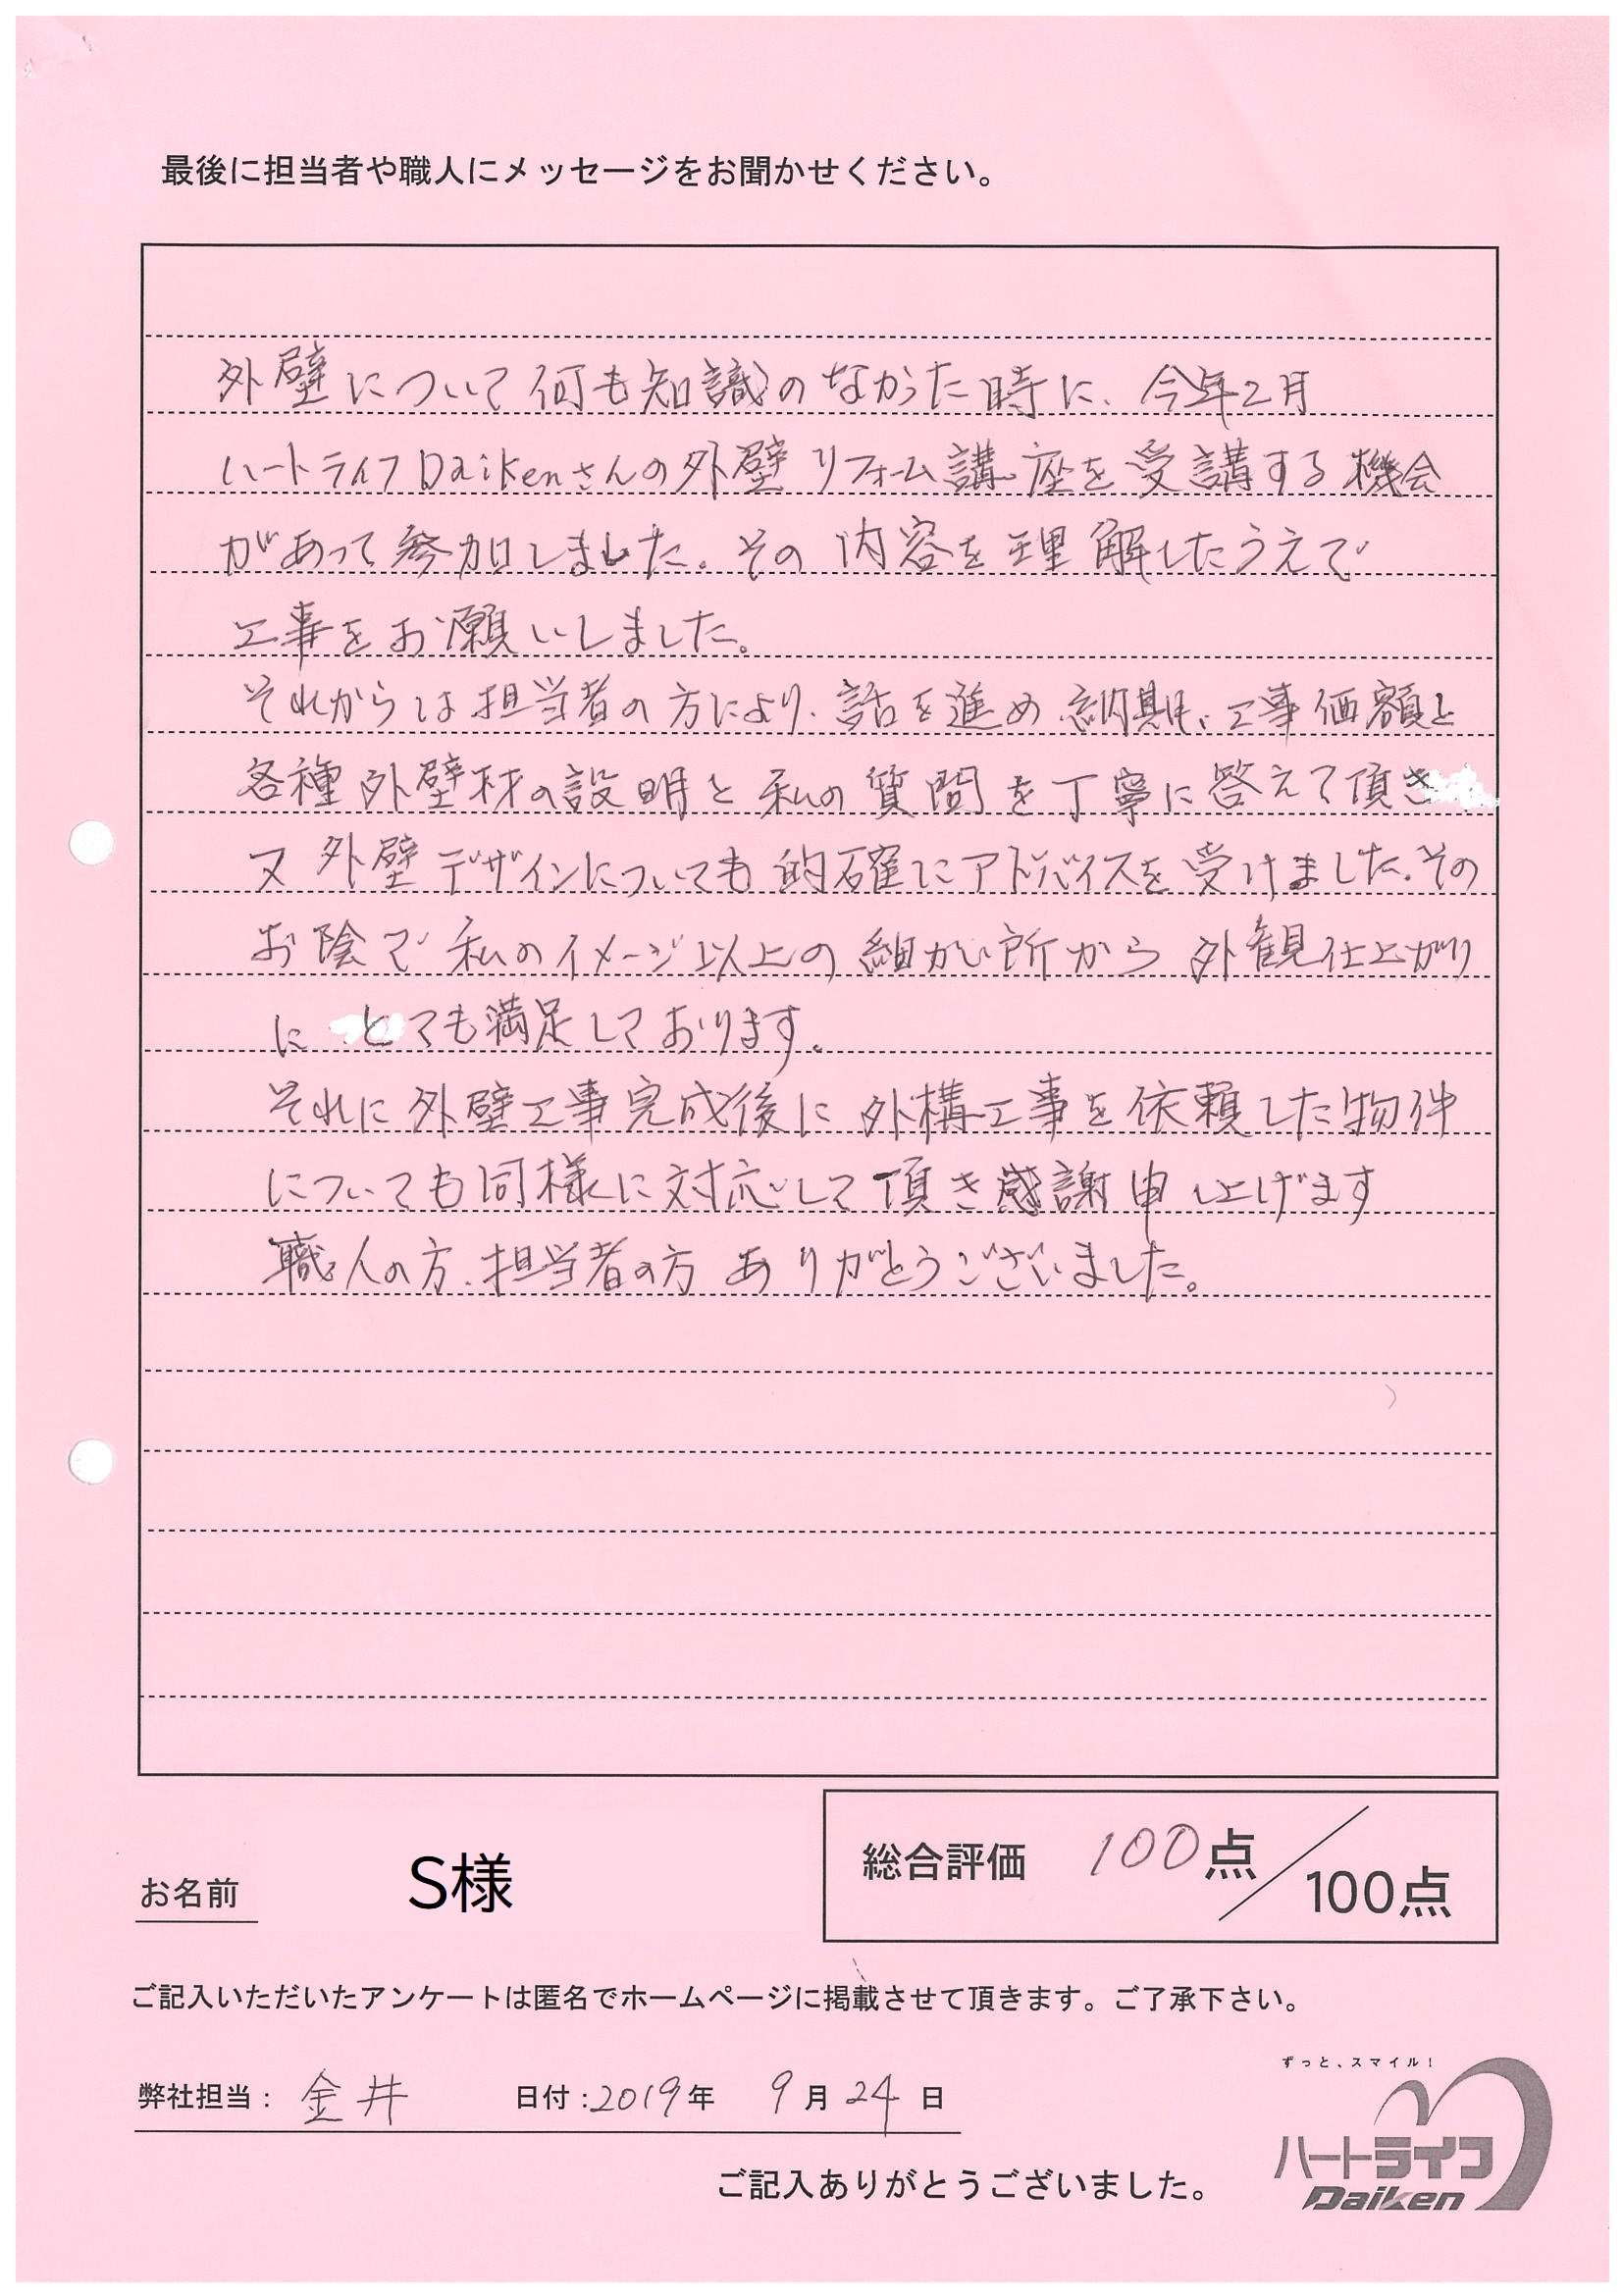 最後に担当者や職人にメッセージをお聞かせください。
外壁について何も知識のなかった時に、今年2月
ハートライフDaikenさんの外壁リフォーム講座を受講する機会
があって参加しました。その内容を理解したうえで
工事をお願いしました。
それからは担当者の方により、話を進め納期、工事価額と
各種外壁材の設明と私の質問を丁寧に答えて頂き
又外壁デザインについても的確にアドバイスを受けました。その
お陰で私のイメージ以上の細かい所から外観仕上がり
にとても満足しております。
それに外壁工事完成後に外構工事を依頼した物件
についても同様に対応して頂き感謝申し上げます
職人の方、担当者の方ありがとうございました。
お名前 S様
総合評価 100点/100点
ご記入いただいたアンケートは匿名でホームページに掲載させて頂きます。ご了承下さい。
弊社担当：金井 日付：2019年 9月24日
ご記入ありがとうございました。
ずっと、スマイル！
ハートライフ
Daiken